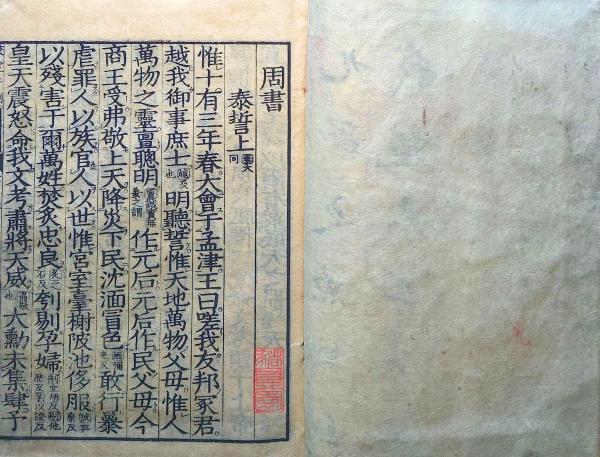 周書
泰誓上
惟十有三年春大會于孟津王曰嗟我友邦冢君
越我御事庶士明聽誓惟天地萬物父母惟人
萬物之靈亶聰明作元后元后作民父母今
商王受弗敬上天降災下民沈湎冒色敢行暴
虐罪人以族官人以世惟宮室臺榭陂池侈服
以殘害于爾萬姓焚炙忠良刳剔孕婦
皇天震怒命我文考肅將天威大勳未集肆予